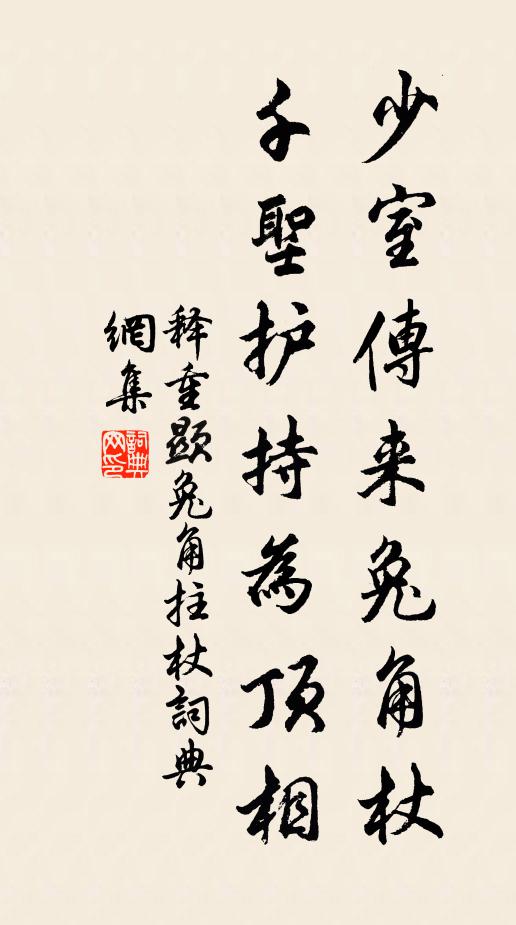 少室傳来兔角杖
千聖护持為頂相
释重顯兔角拄杖詞典
網集
詞典
网印